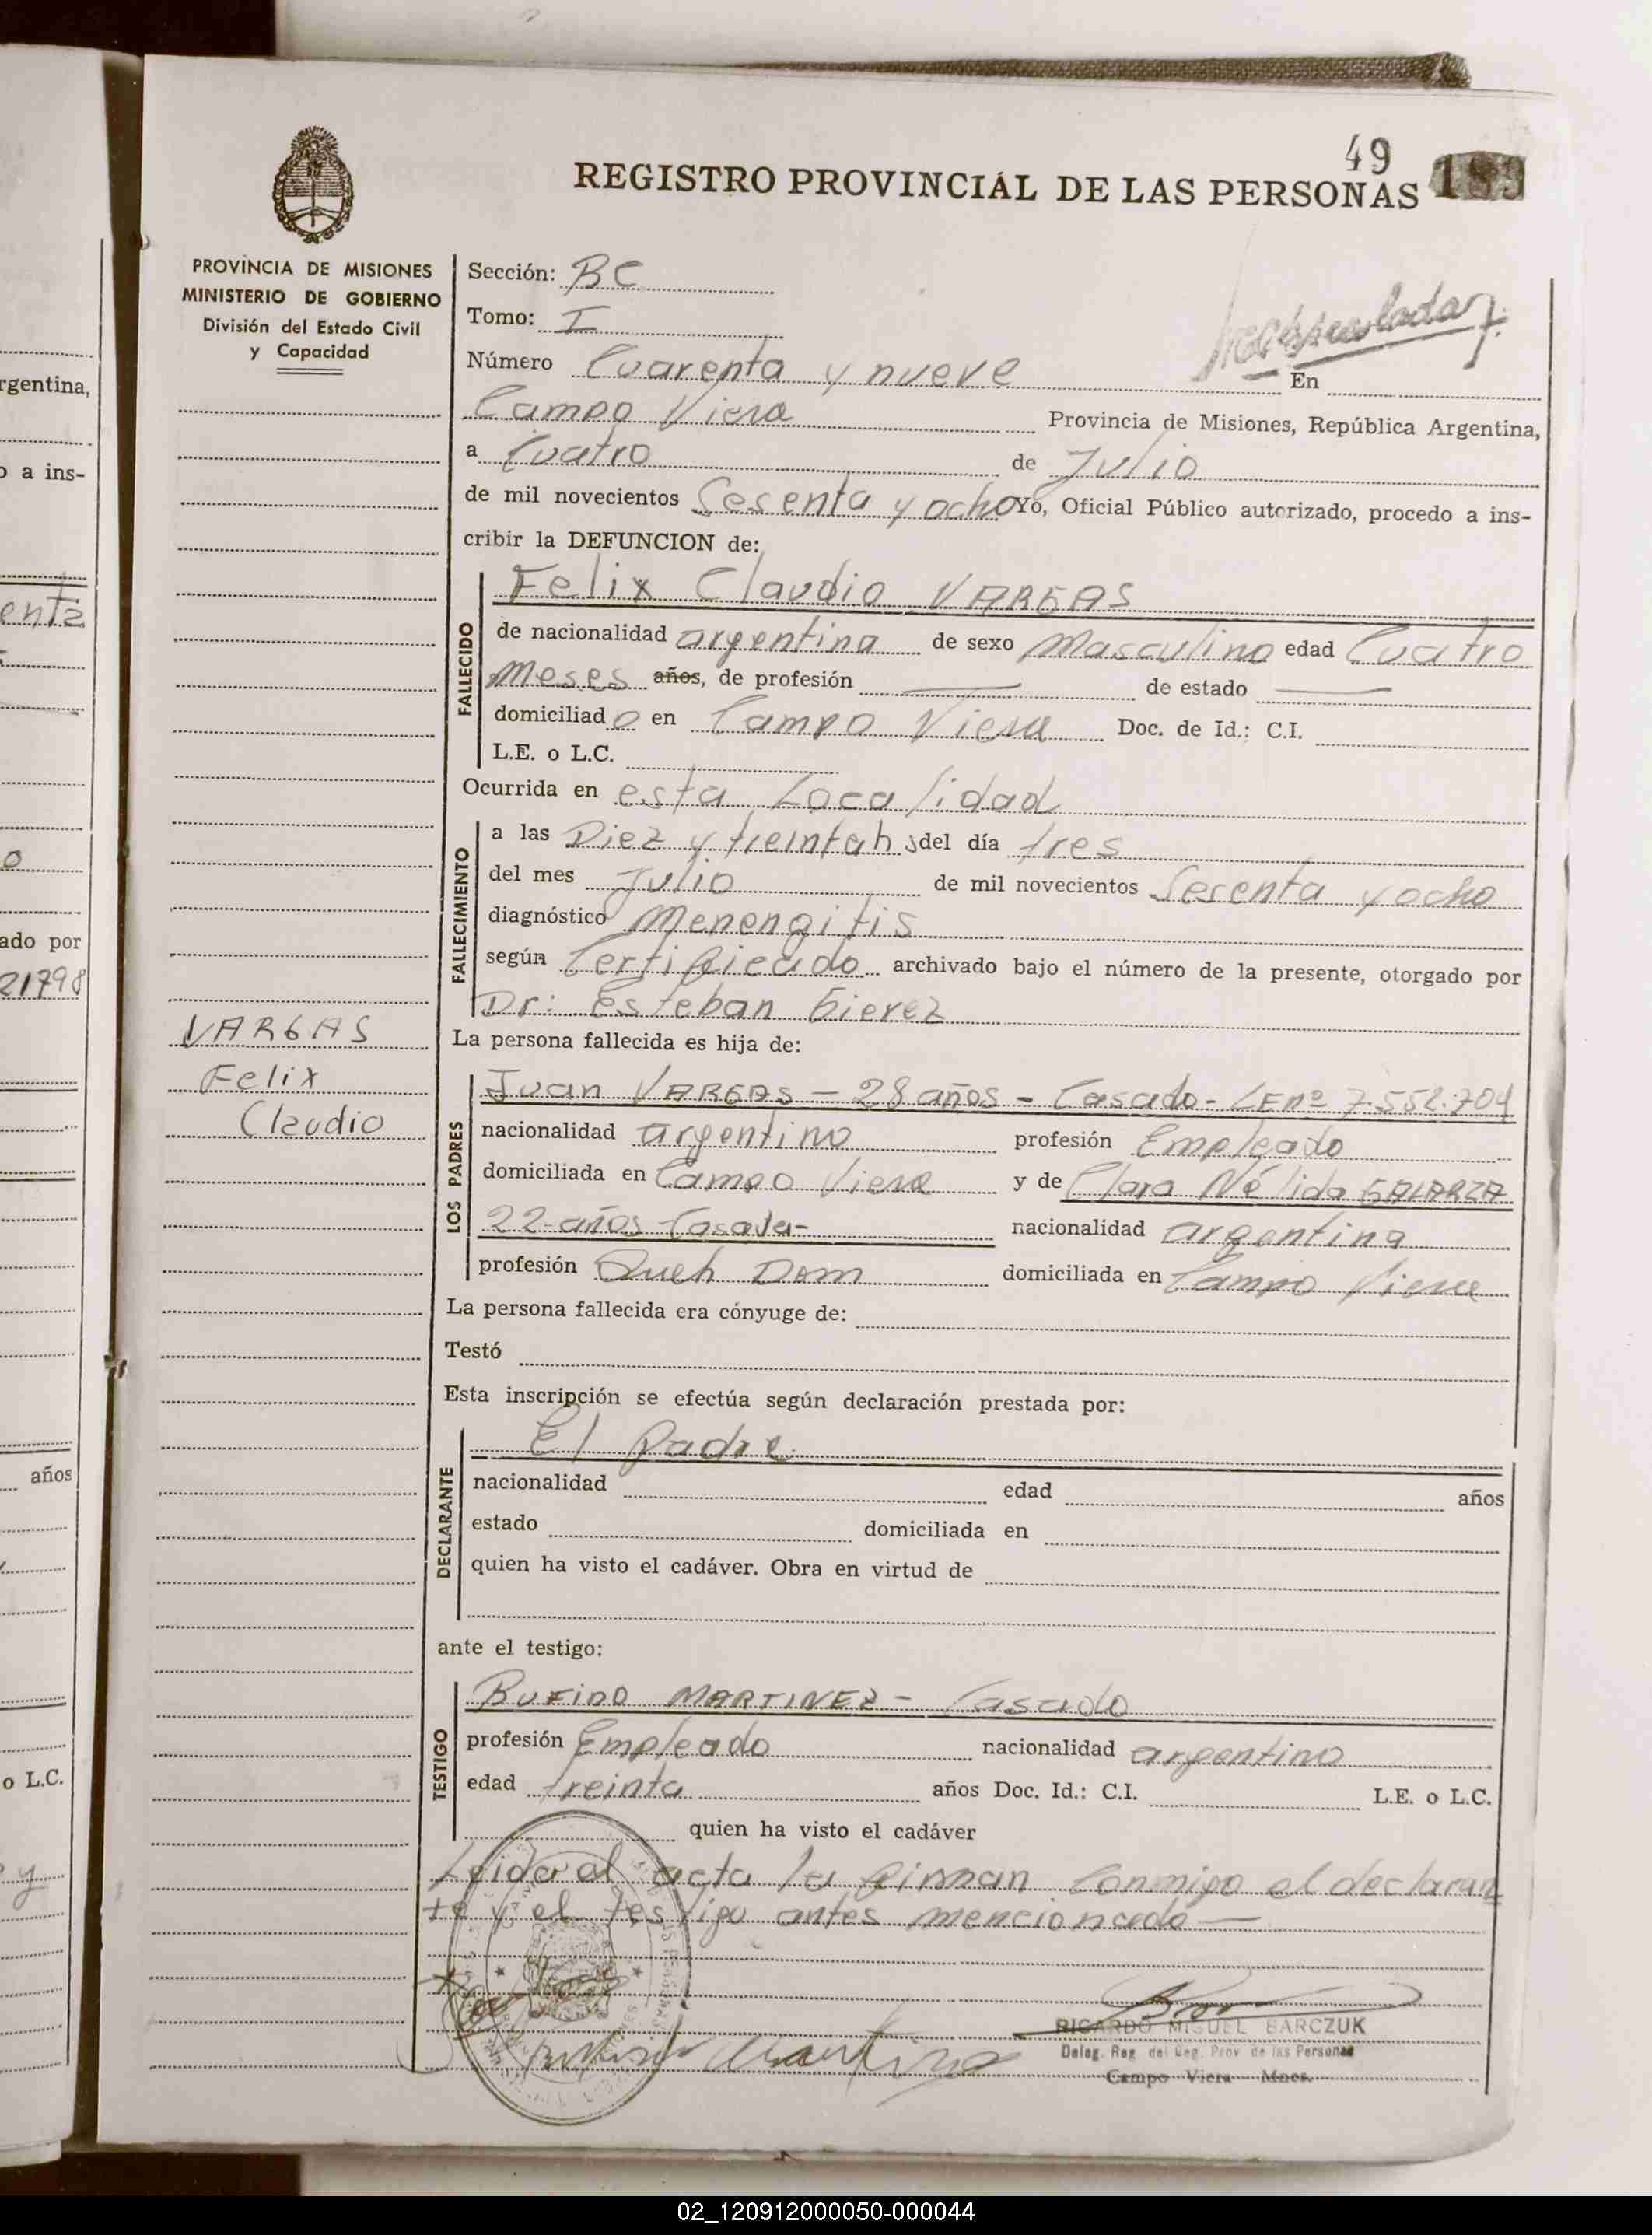 49
REGISTRO PROVINCIAL DE LAS PERSONAS
PROVINCIA DE MISIONES
MINISTERIO DE GOBIERNO
División del Estado Civil
y Capacidad
Sección: BC
Tomo: I
Número Cuarenta y nueve En
Campo Viera Provincia de Misiones, República Argentina,
a Cuatro de Julio
de mil novecientos Sesenta y ocho Yo, Oficial Público autorizado, procedo a ins-
cribir la DEFUNCION de:
FALLECIDO
Felix Claudio VARGAS
de nacionalidad argentina de sexo Masculino edad Cuatro
meses años, de profesión — de estado —
domiciliado en Campo Viera Doc. de Id.: C.I.
L.E. o L.C.
Ocurrida en esta Localidad
FALLECIMIENTO
a las Diez y treinta hs del día tres
del mes Julio de mil novecientos Sesenta y ocho
diagnóstico Menengitis
según Certificado archivado bajo el número de la presente, otorgado por
Dr: Esteban Gierez
VARGAS
Felix
Claudio
La persona fallecida es hija de:
LOS PADRES
Juan VARGAS – 28 años – Casado – LE nº 7.552.704
nacionalidad argentino profesión Empleado
domiciliada en Campo Viera y de Clara Nélida GALARZA
22 años – Casada – nacionalidad argentina
profesión Queh Dom domiciliada en Campo Viera
La persona fallecida era cónyuge de:
Testó
Esta inscripción se efectúa según declaración prestada por:
DECLARANTE
El padre
nacionalidad edad años
estado domiciliada en
quien ha visto el cadáver. Obra en virtud de
ante el testigo:
TESTIGO
Rufino MARTINEZ – Casado
profesión Empleado nacionalidad argentino
edad treinta años Doc. Id.: C.I. L.E. o L.C.
quien ha visto el cadáver
Leida el acta la firman conmigo el declaran
te y el testigo antes mencionado —
RICARDO MIGUEL BARCZUK
Deleg. Reg. del Reg. Prov. de las Personas
Campo Viera Mnes.
rgentina,
o a ins-
enta
o
ado por
21798
años
o L.C.
y
02_120912000050-000044